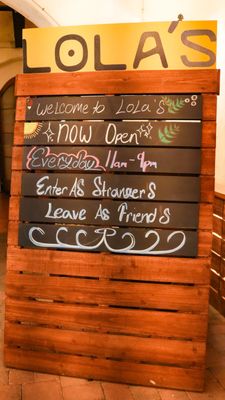 LOLA'S
Welcome to LoLa's
Now Open
Everyday 11am - 9pm
Enter As Strangers
Leave As Friends